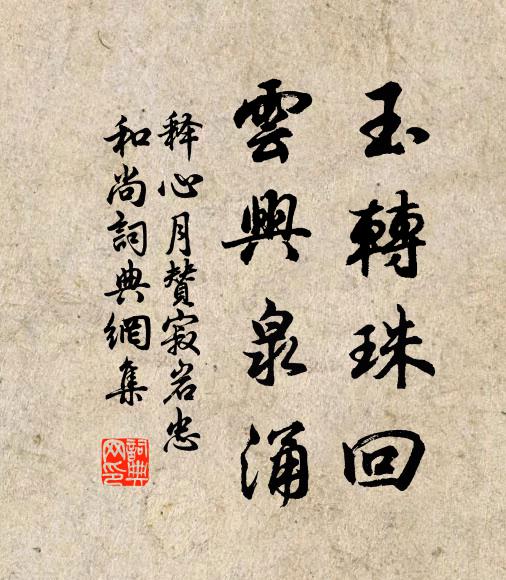 玉轉珠回
雲興泉涌
释心月贊寂岩忠
和尚詞典網集
詞典網印